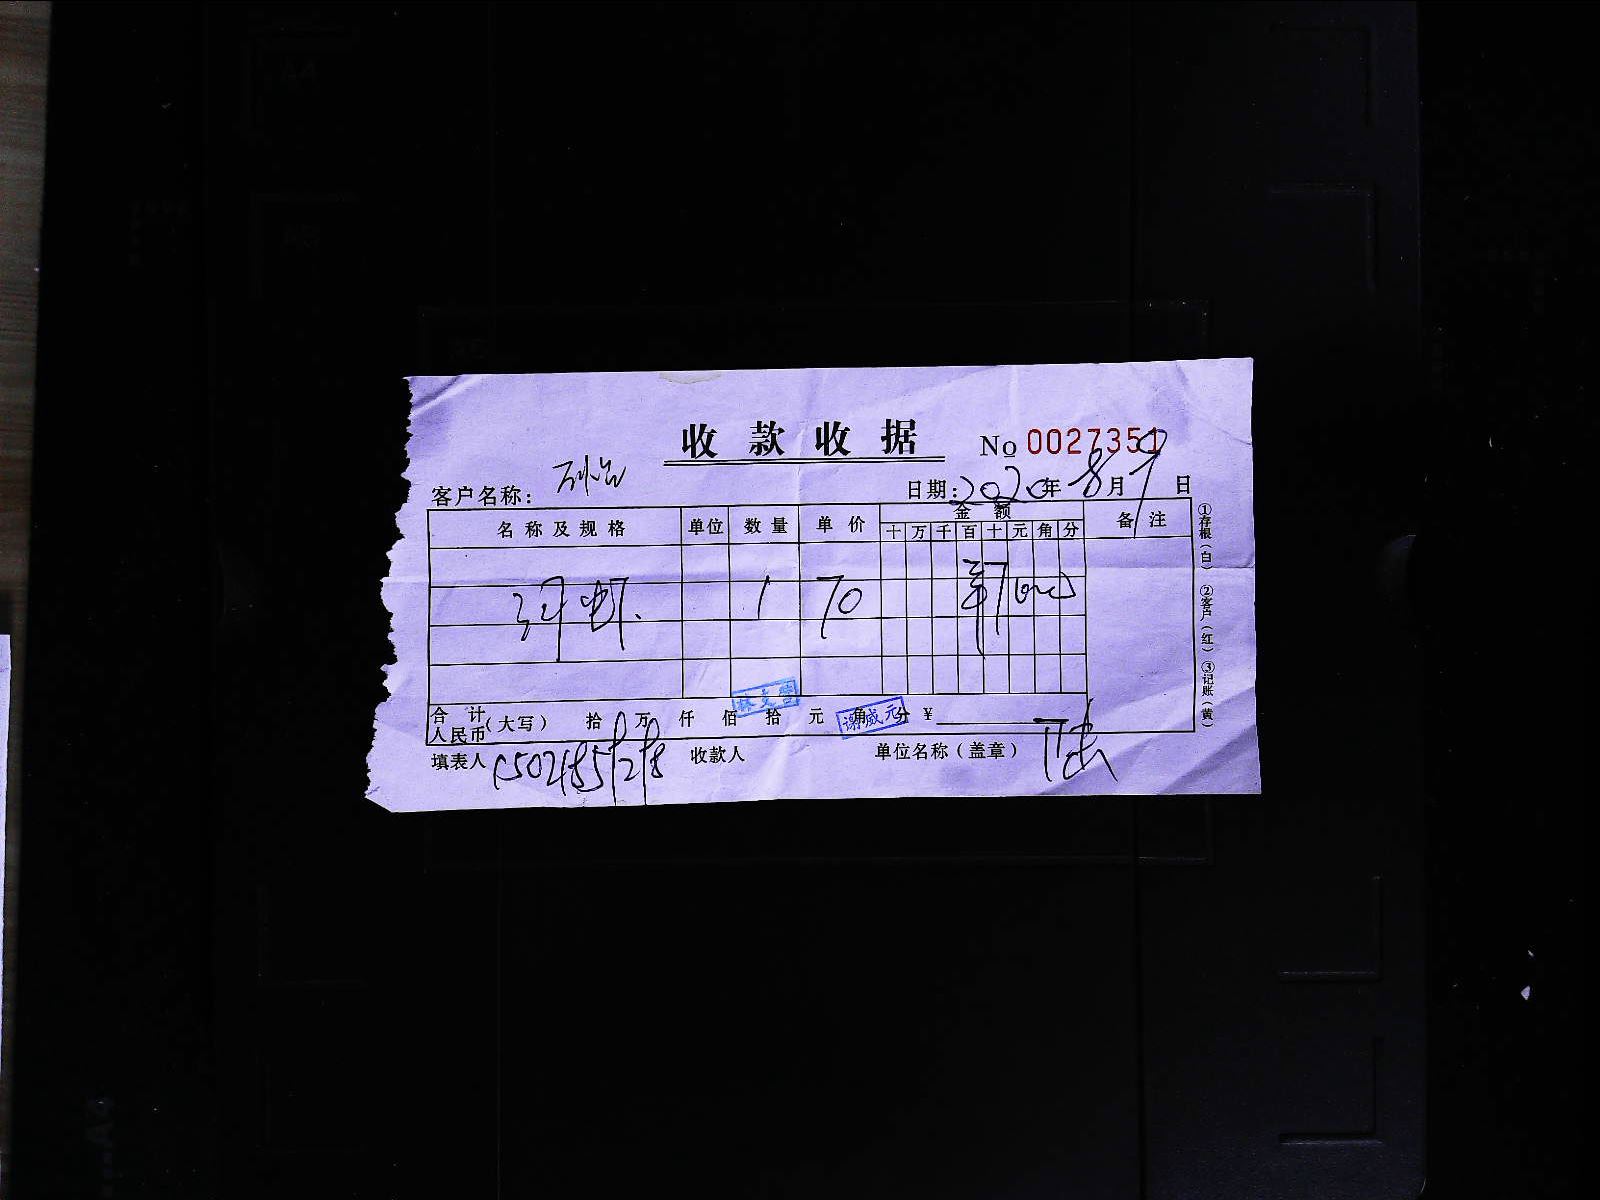 收款收据
No 0027351
客户名称：
日期：2020年8月9日
名称及规格 单位 数量 单价 金额 备注
十 万 千 百 十 元 角 分
1 70
合计人民币（大写） 拾 万 仟 佰 拾 元 角 分 ¥
谢威元
填表人 收款人 单位名称（盖章）
①存根（白） ②客户（红） ③记账（黄）